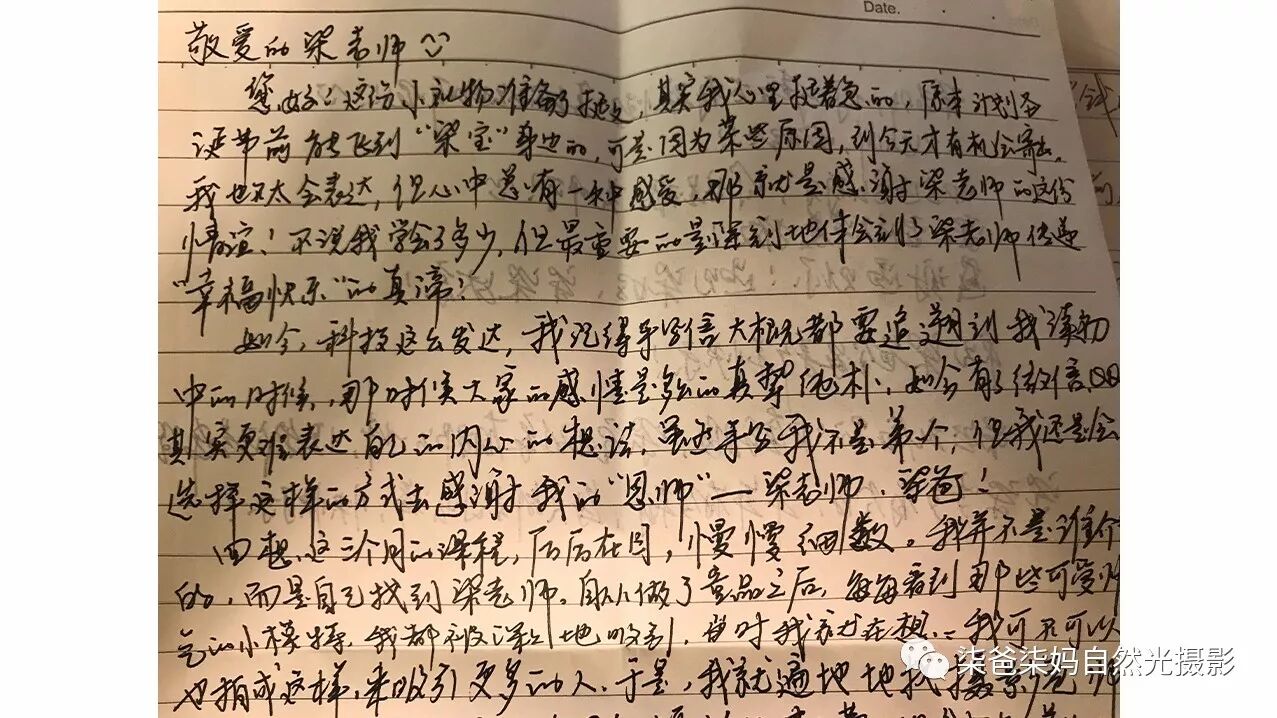 Date.
敬爱的梁老师
您好！这份小礼物准备了挺久，其实我心里挺着急的，原本计划圣
诞节前能飞到“梁宝”身边的，可是因为某些原因，到今天才有机会寄出，
我也不太会表达，但心中总有一种感受，那就是感谢梁老师的这份
情谊！不说我学会了多少，但最重要的是深刻地体会到了梁老师传递
“幸福快乐”的真谛！
如今，科技这么发达，我记得手写信大概都要追溯到我读初
中的时候，那时候大家的感情是多么的真挚纯朴，如今有了微信QQ
其实更难表达自己的内心的想法，虽然手写我不是第一个，但我还是会
选择这样的方式去感谢我的“恩师”—梁老师、梁爸！
回想这三个月的课程，历历在目，慢慢细数。我并不是谁介
的，而是自己找到梁老师。自从做了童品之后，每每看到那些可爱帅
气的小模特，我都被深深地吸引，当时我就在想，我可不可以
也拍成这样，来吸引更多的人，于是，我就遍地地找摄影
柒爸柒妈自然光摄影